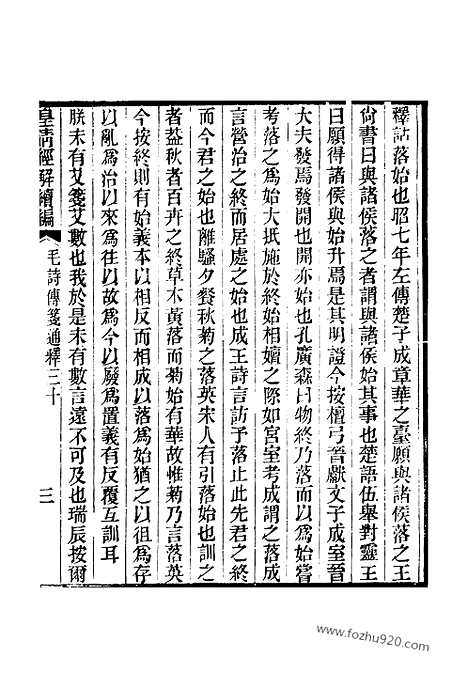 釋詁落始也昭七年左傳楚子成章華之臺願與諸侯落之王
尙書曰與諸侯落之者謂與諸侯始其事也楚語伍舉對靈王
曰願得諸侯與始升焉是其明證今按檀弓晉獻文子成室晉
大夫發焉發開也開亦始也孔廣森曰物終乃落而以爲始嘗
考落之爲始大抵施於終始相嬗之際如宮室考成謂之落成
言營治之終而居處之始也成王詩言訪予落止此先君之終
而今君之始也離騷夕餐秋菊之落英宋人有引落始也訓之
者葢秋者百卉之終草木黃落而菊始有華故惟菊乃言落英
今按終則有始義本以相反而相成以落爲始猶之以徂爲存
以亂爲治以來爲往以故爲今以廢爲置義有反覆互訓耳
朕未有艾箋艾數也我於是未有數言遠不可及也瑞辰按爾
皇淸經解續編
毛詩傳箋通釋三十
三
www.fozhu920.com